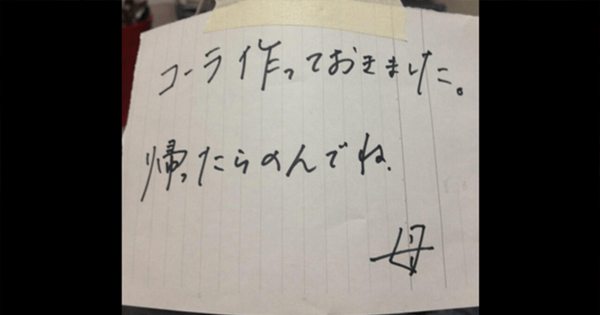 コーラ作っておきました。
帰ったらのんでね、
母